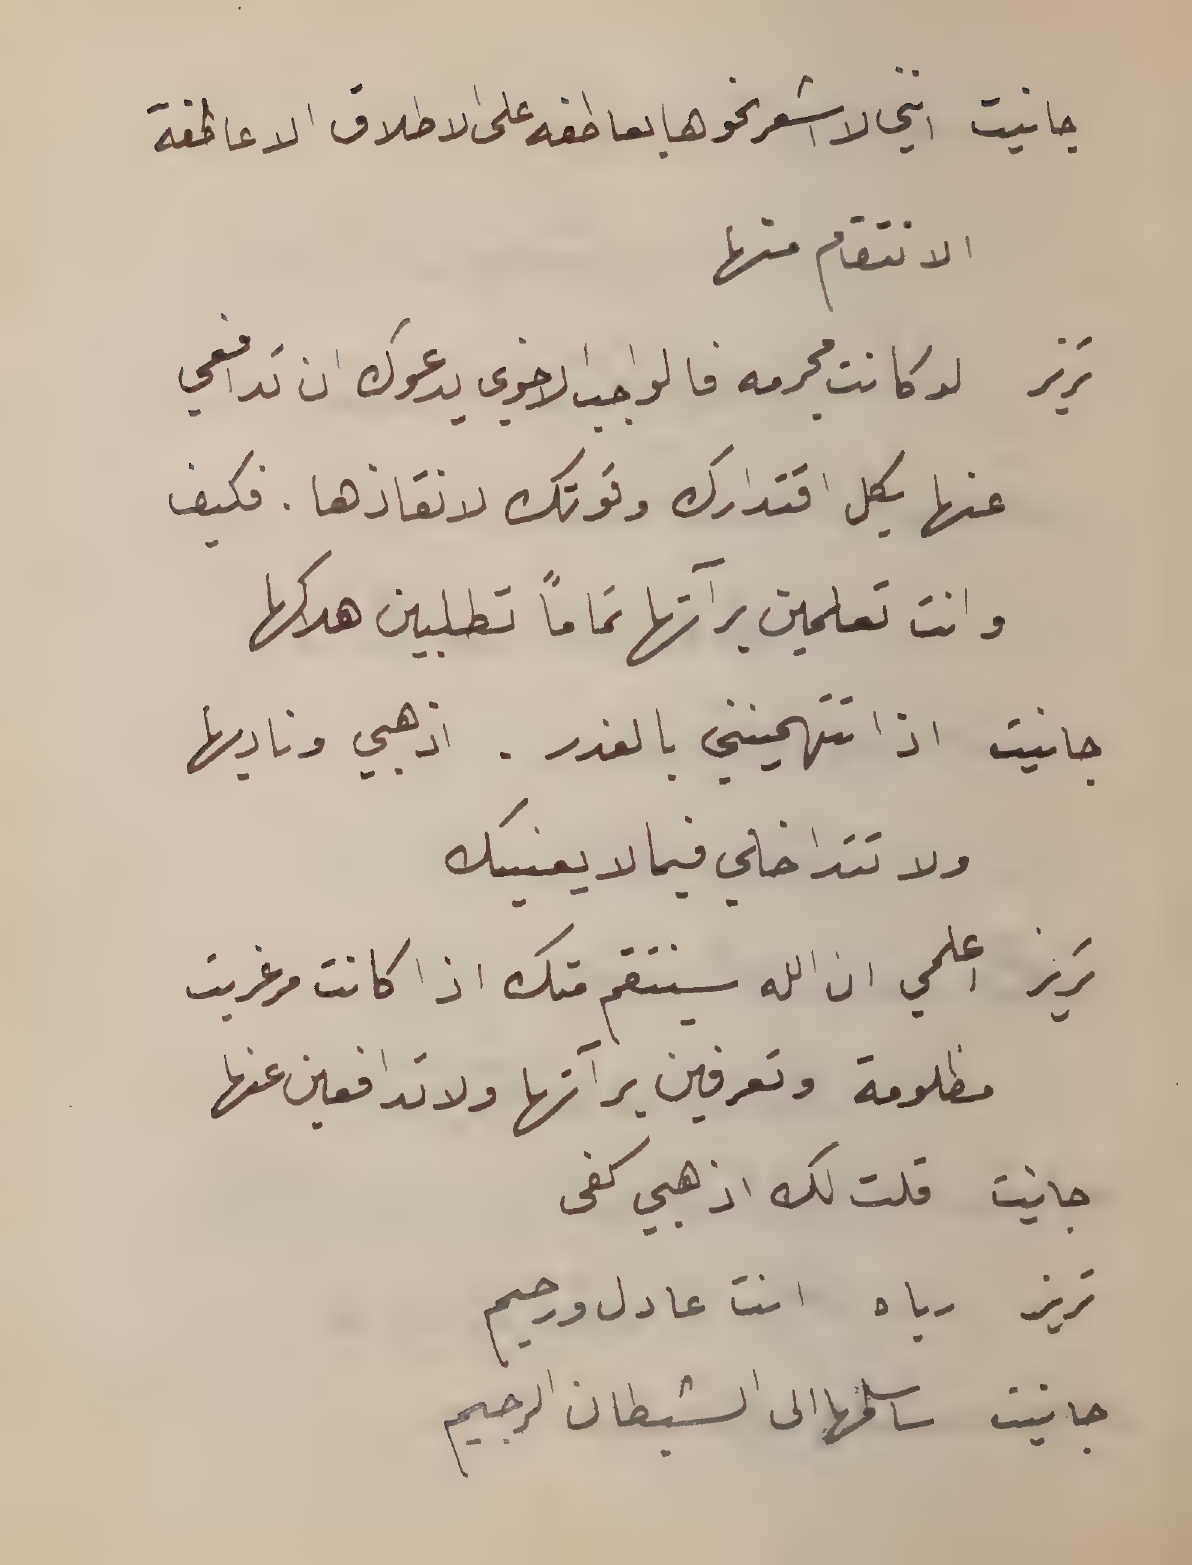 جانيت انني لا اشعر نحوها بعاطفه على الاطلاق الا عاطفة
الانتقام منها
تريز لو كانت مجرمه فالواجب الاخوي يدعوك ان تدافعي
عنها بكل اقتدارك وقوتك لانقاذها . فكيف
وانت تعلمين برآتها تماماً تطلبين هلاكها
جانيت اذا تتهمينني بالغدر . اذهبي وناديها
ولا تتداخلي فيما لا يعنيك
تريز اعلمي ان الله سينتقم منك اذا كانت مرغريت
مظلومة وتعرفين برآتها ولا تدافعين عنها
جانيت قلت لك اذهبي كفى
تريز رباه انت عادل ورحيم
جانيت ساسلمها الى الشيطان الرجيم